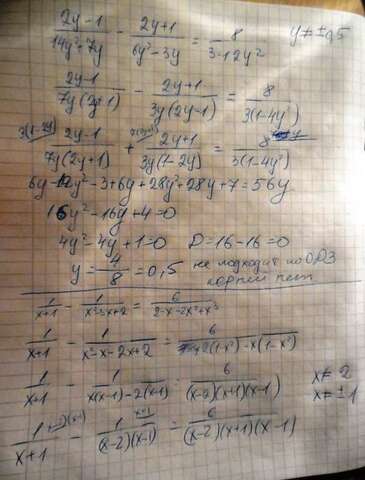 (2y-1)/(14y²+7y) - (2y+1)/(6y²-3y) = 8/(3-12y²) y≠±0,5
(2y-1)/(7y(2y+1)) - (2y+1)/(3y(2y-1)) = 8/(3(1-4y²))
(2y-1)/(7y(2y+1)) + (2y+1)/(3y(1-2y)) = 8/(3(1-4y²))
6y-12y²-3+6y+28y²+28y+7=56y
16y²-16y+4=0
4y²-4y+1=0 D=16-16=0
y=4/8=0,5 не подходит по ОДЗ
корней нет
1/(x+1) - 1/(x²-3x+2) = 6/(2-x-2x²+x³)
1/(x+1) - 1/(x²-x-2x+2) = 6/(2(1-x²)-x(1-x²))
1/(x+1) - 1/(x(x-1)-2(x-1)) = 6/((x-2)(x+1)(x-1)) x≠2
x≠±1
1/(x+1) - 1/((x-2)(x-1)) = 6/((x-2)(x+1)(x-1))